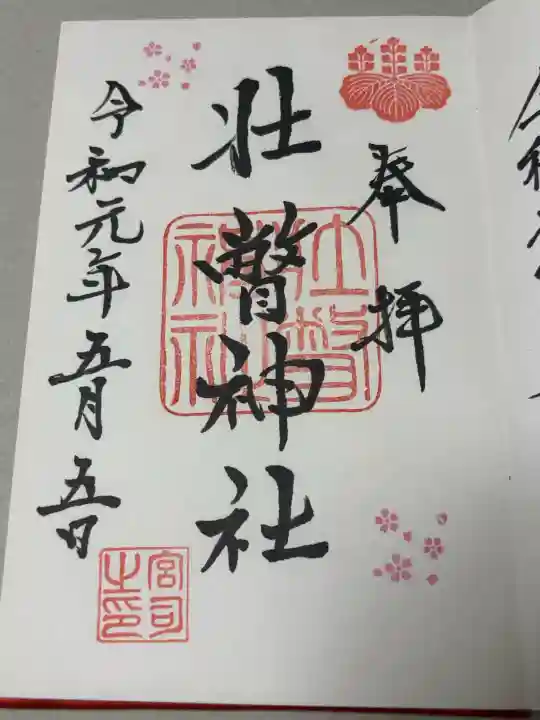 奉拝
壮瞥神社
壮瞥神社
令和元年五月五日
宮司之印